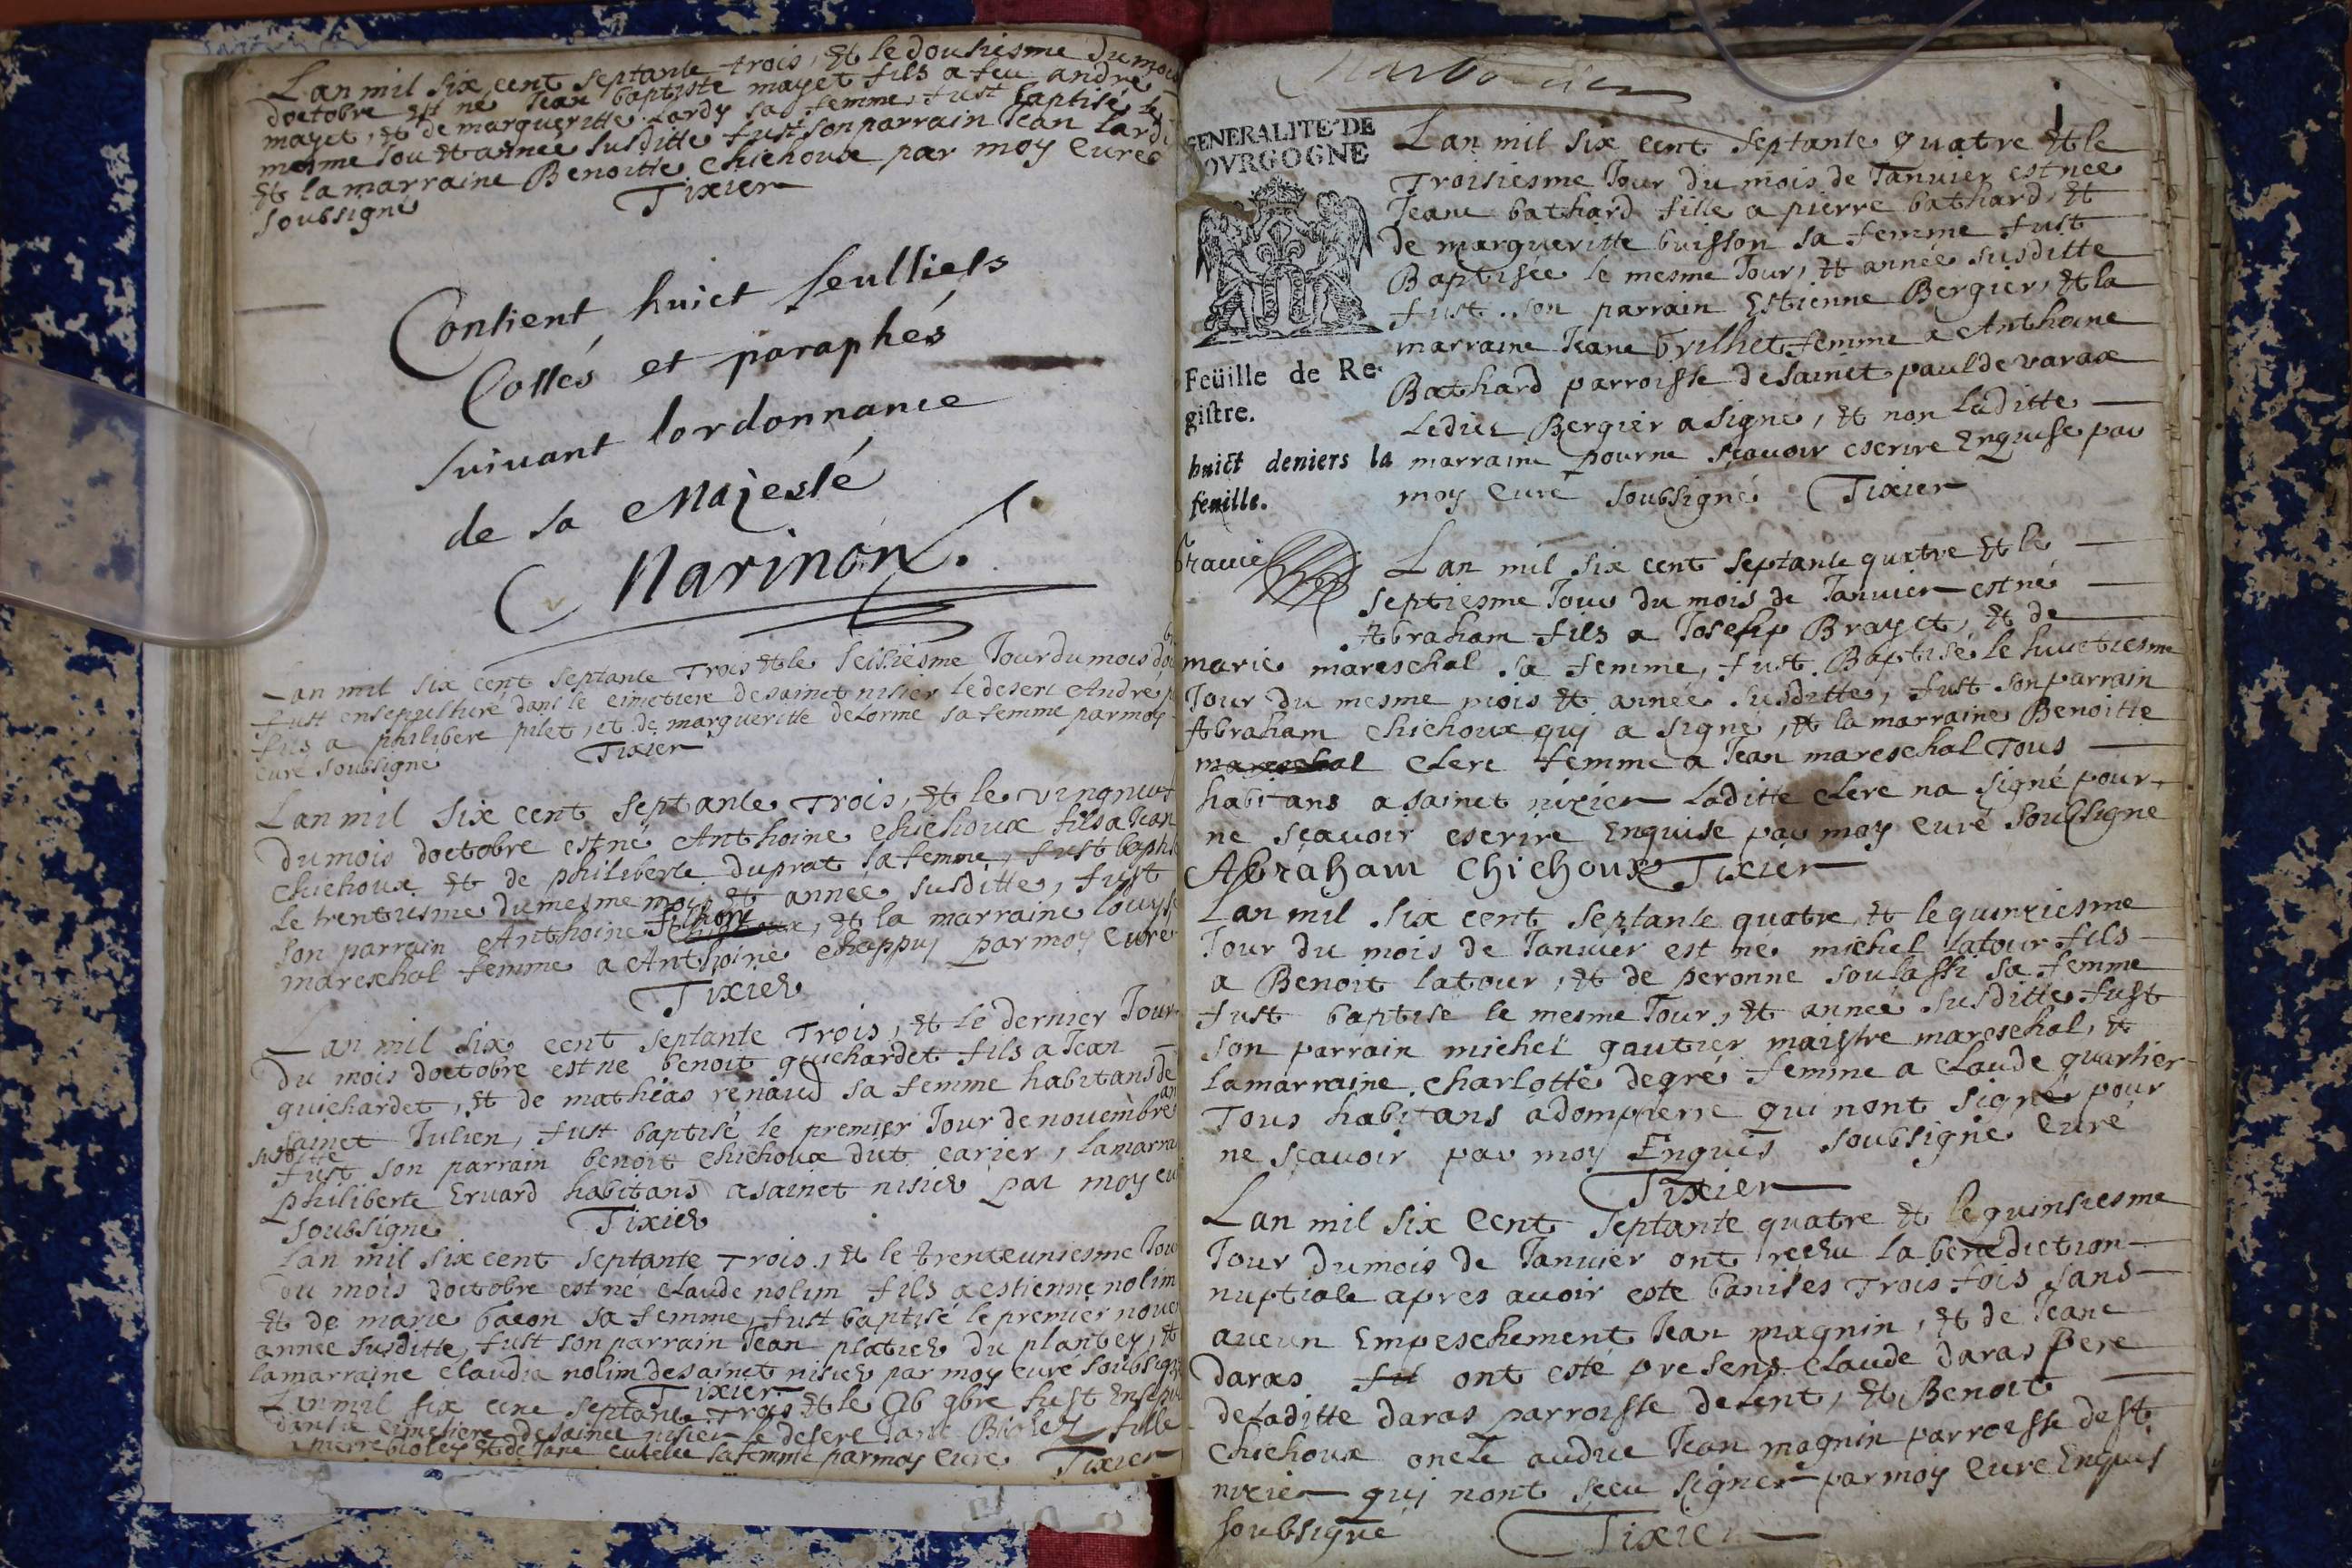 Lan mil six cent septante trois, et le dousiesme du mois
doctobre est né Jean baptiste mayet fils a feu andré
mayet, et de margueritte Lardy sa femme, fust baptisé le
mesme Jou et année susditte fust son parrain Jean Lardi
et la marraine Benoitte Chichoux par moy Curé
soubsigné Tixier
Contient huict feulliets
Cottés et paraphés
suivant lordonnance
de sa Majesté
Marinon.
Lan mil six cent septante Trois et le seisiesme Jour du mois doc
fust ensepulturé dans le cimetiere de sainct nisier le desert André
fils a philibert pilet, et de margueritte delorme sa femme par moy
curé soubsigné Tixier
Lan mil six cent septante Trois, et le vingneuf
du mois doctobre est né Anthoine Chichoux fils a Jean
Chichoux et de philiberte duprat sa femme, fust baptisé
le trentiesme du mesme mois et année susditte, fust
son parrain Anthoine, et la marraine louyse
mareschal femme a Anthoine Chappuy par moy Curé
Tixier
Lan mil six cent septante Trois, et le dernier Jour
du mois doctobre est né benoit guichardet fils a Jean
guichardet, et de mathias renaud sa femme habitans de
sainct Julien, fust baptisé le premier Jour de nouembre an
susditte
fust son parrain benoit Chichoux dit carier, la marra
philiberte Eruard habitans a sainct nisier par moy cu
soubsigné Tixier
Lan mil six cent septante Trois, et le trenteuniesme Jou
du mois doctobre est né Claude nolim fils a estienne nolim
et de marie bacon sa femme, fust baptisé le premier noue
année susditte, fust son parrain Jean platier du plantey, et
la marraine Claudia nolim de sainct nisier par moy cure soubsigné
Tixier
Lan mil six cent septante Trois et le 9bre fust Ensepu
dans le cimetiere de sainct nisier le desert Jane Bioley fille
a pierre bioley et de Jane sa femme par moy Cure Tixier
j
GENERALITE DE
BOVRGOGNE
Feüille de Re-
gistre.
huict deniers la
feuille.
Lan mil six cent septante quatre et le
Troisiesme Jour du mois de Januier est nee
Jeane bathard fille a pierre bathard, et
de margueritte buisson sa femme fust
Baptisée le mesme Jour, et année susditte
fust son parrain Estienne Bergier, et la
marraine Jeane brilhet femme a Anthoine
Bathard parroisse de sainct paul de varax
Ledict Bergier a signé, et non laditte
marraine pour ne sçauoir escrire Enquise par
moy Curé soubsigné Tixier
Lan mil six cent septante quatre et le
septiesme Jour du mois de Januier est né
Abraham fils a Joseph Brayet, et de
marie mareschal sa femme, fust Baptisé le huictiesme
Jour du mesme mois et année susditte, fust son parrain
Abraham Chichoux qui a signé, et la marraine Benoitte
mareschal Clerc femme a Jean mareschal Tous
habitans a sainct nizier laditte clerc na signé pour
ne sçauoir escrire Enquise par moy Curé soubsigné
Abraham Chichoux Tixier
Lan mil six cent septante quatre, et le quinziesme
Jour du mois de Januier est né michel latour fils
a Benoit latour, et de peronne soulassi sa femme
fust baptisé le mesme Jour, et année susditte fust
son parrain michel gautier maistre mareschal, et
la marraine Charlotte degré femme a Claude quartier
Tous habitans a dompierre qui nont signer pour
ne sçauoir par moy Enquis soubsigné Curé
Tixier
Lan mil six Cent septante quatre et le quinsiesme
Jour du mois de Januier ont reçeu la benediction
nuptiale apres auoir esté banises Trois fois sans
aucun Empeschement Jean magnin, et de Jeane
daras ont esté presens Claude daras pere
de laditte daras parroisse de Lent, et Benoit
Chichoux oncle audict Jean magnin parroisse de st
nizier qui nont sçeu signer par moy Cure Enquis
soubsigné Tixier